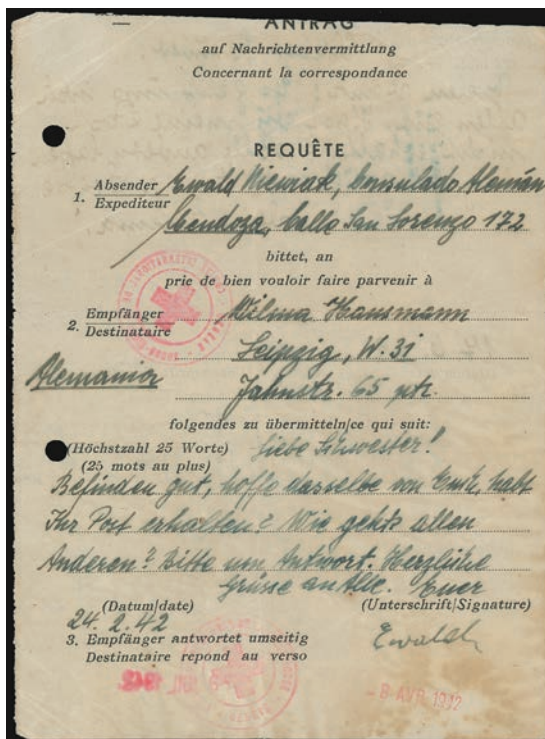 ANTRAG
auf Nachrichtenvermittlung
Concernant la correspondance
REQUÊTE
1. Absender Expediteur Ewald Niewiak, Consulado Alemán
Mendoza, Calle San Lorenzo 172
bittet, an
prie de bien vouloir faire parvenir à
2. Empfänger Destinataire Wilma Hausmann
Leipzig, W. 31
Alemania Jahnstr. 65 ptr.
folgendes zu übermitteln/ce qui suit:
(Höchstzahl 25 Worte) Liebe Schwester!
(25 mots au plus)
Befinden gut, hoffe dasselbe von Euch, habt
Ihr Post erhalten? Wie gehts allen
Anderen? Bitte um Antwort. Herzliche
Grüsse an Alle. Euer
(Datum/date) (Unterschrift/Signature)
24. 2. 42 Ewald
3. Empfänger antwortet umseitig
Destinataire repond au verso
- 8 AVR 1942